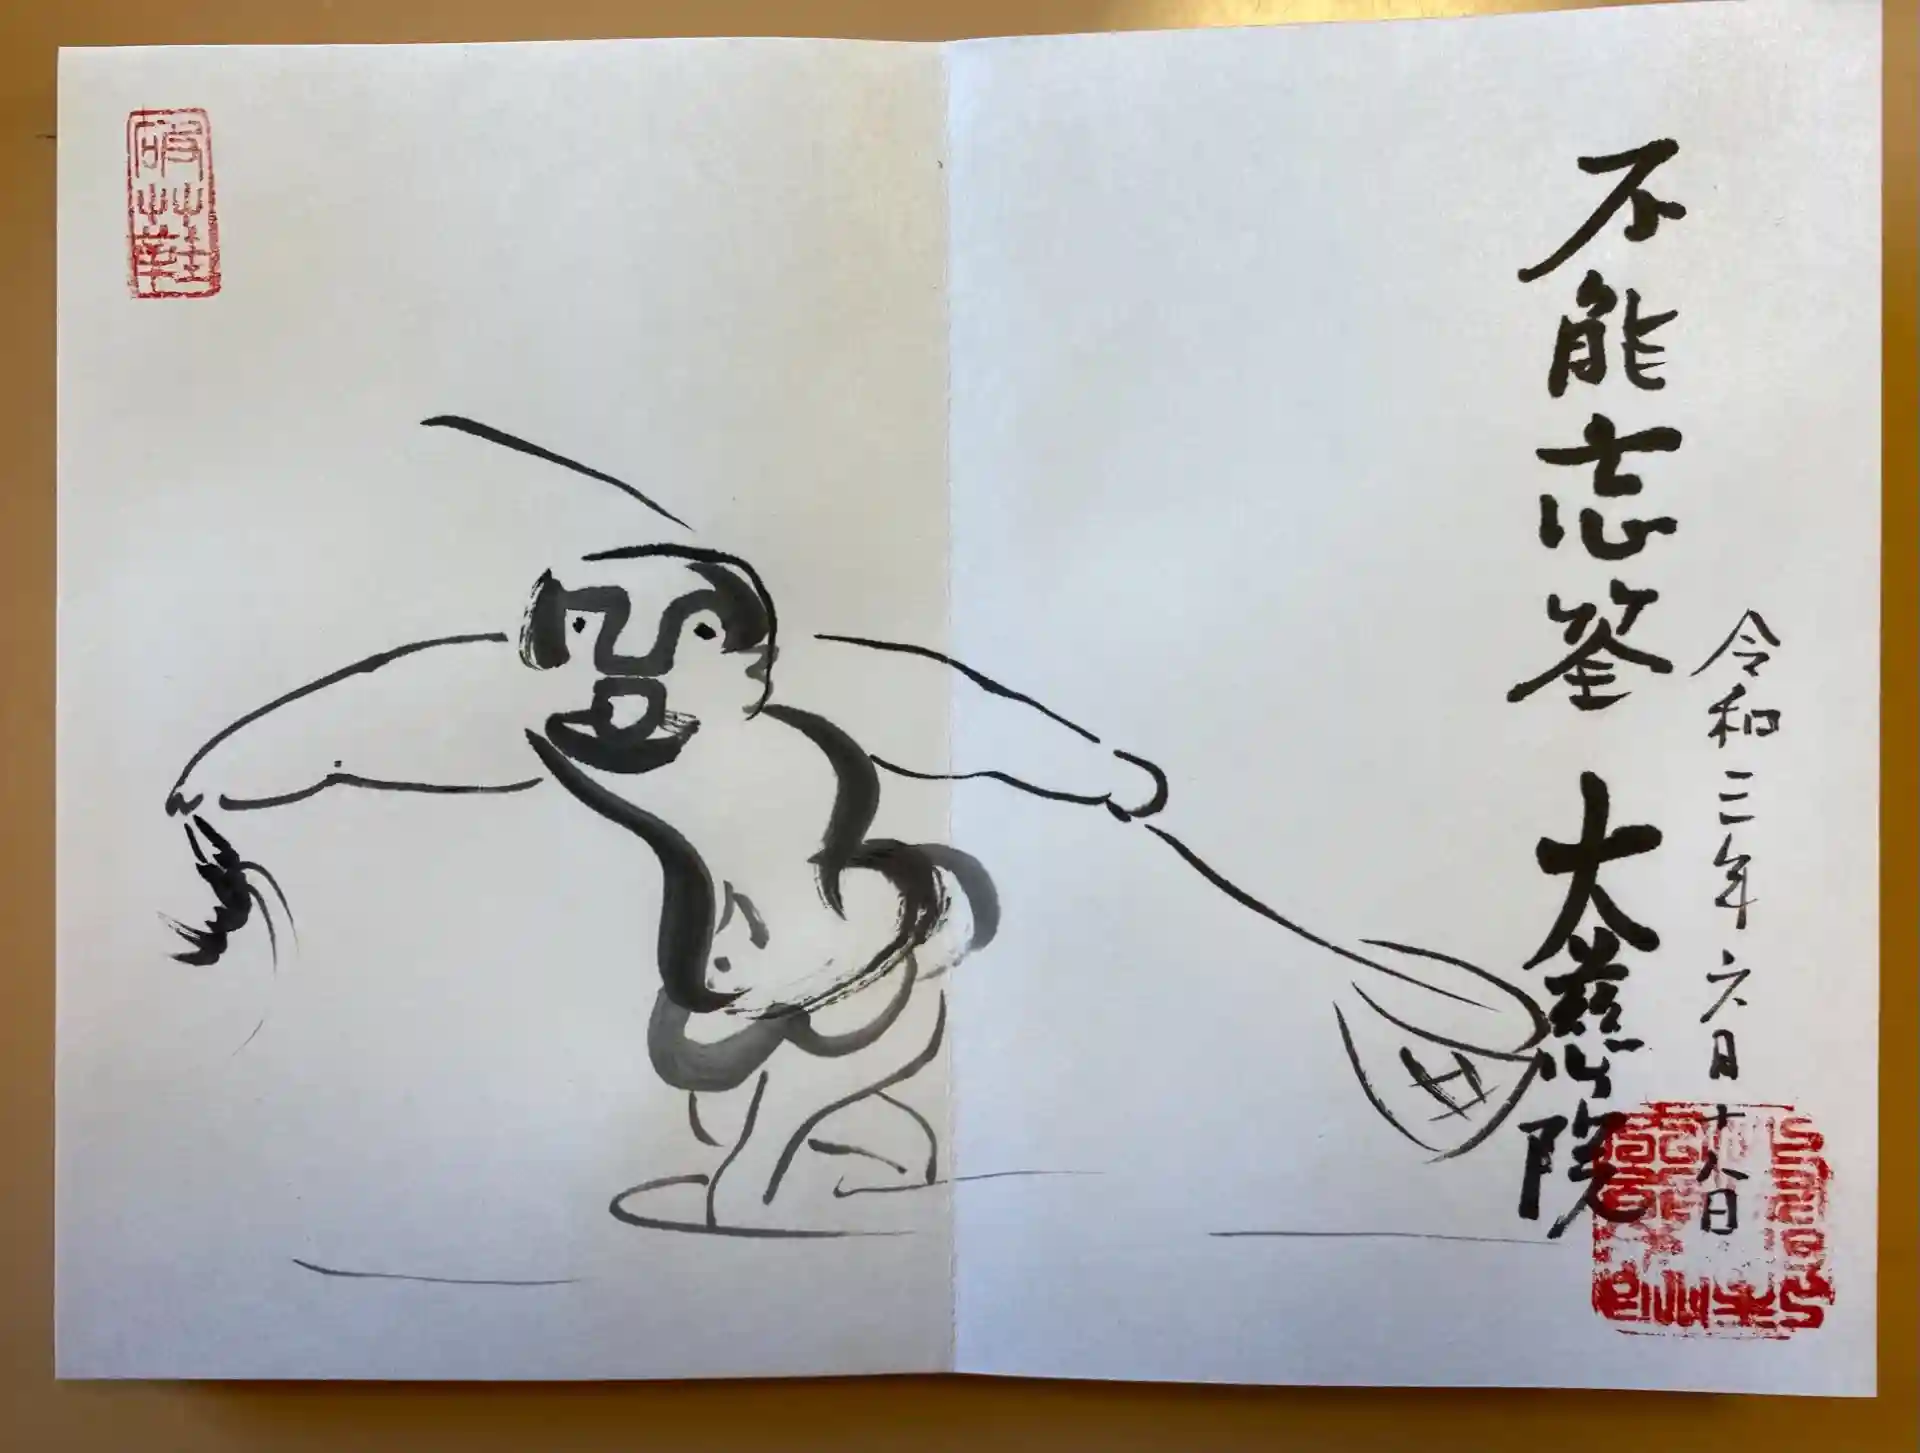 令和三年六月十八日
不能忘筌 大慈院
破草鞋